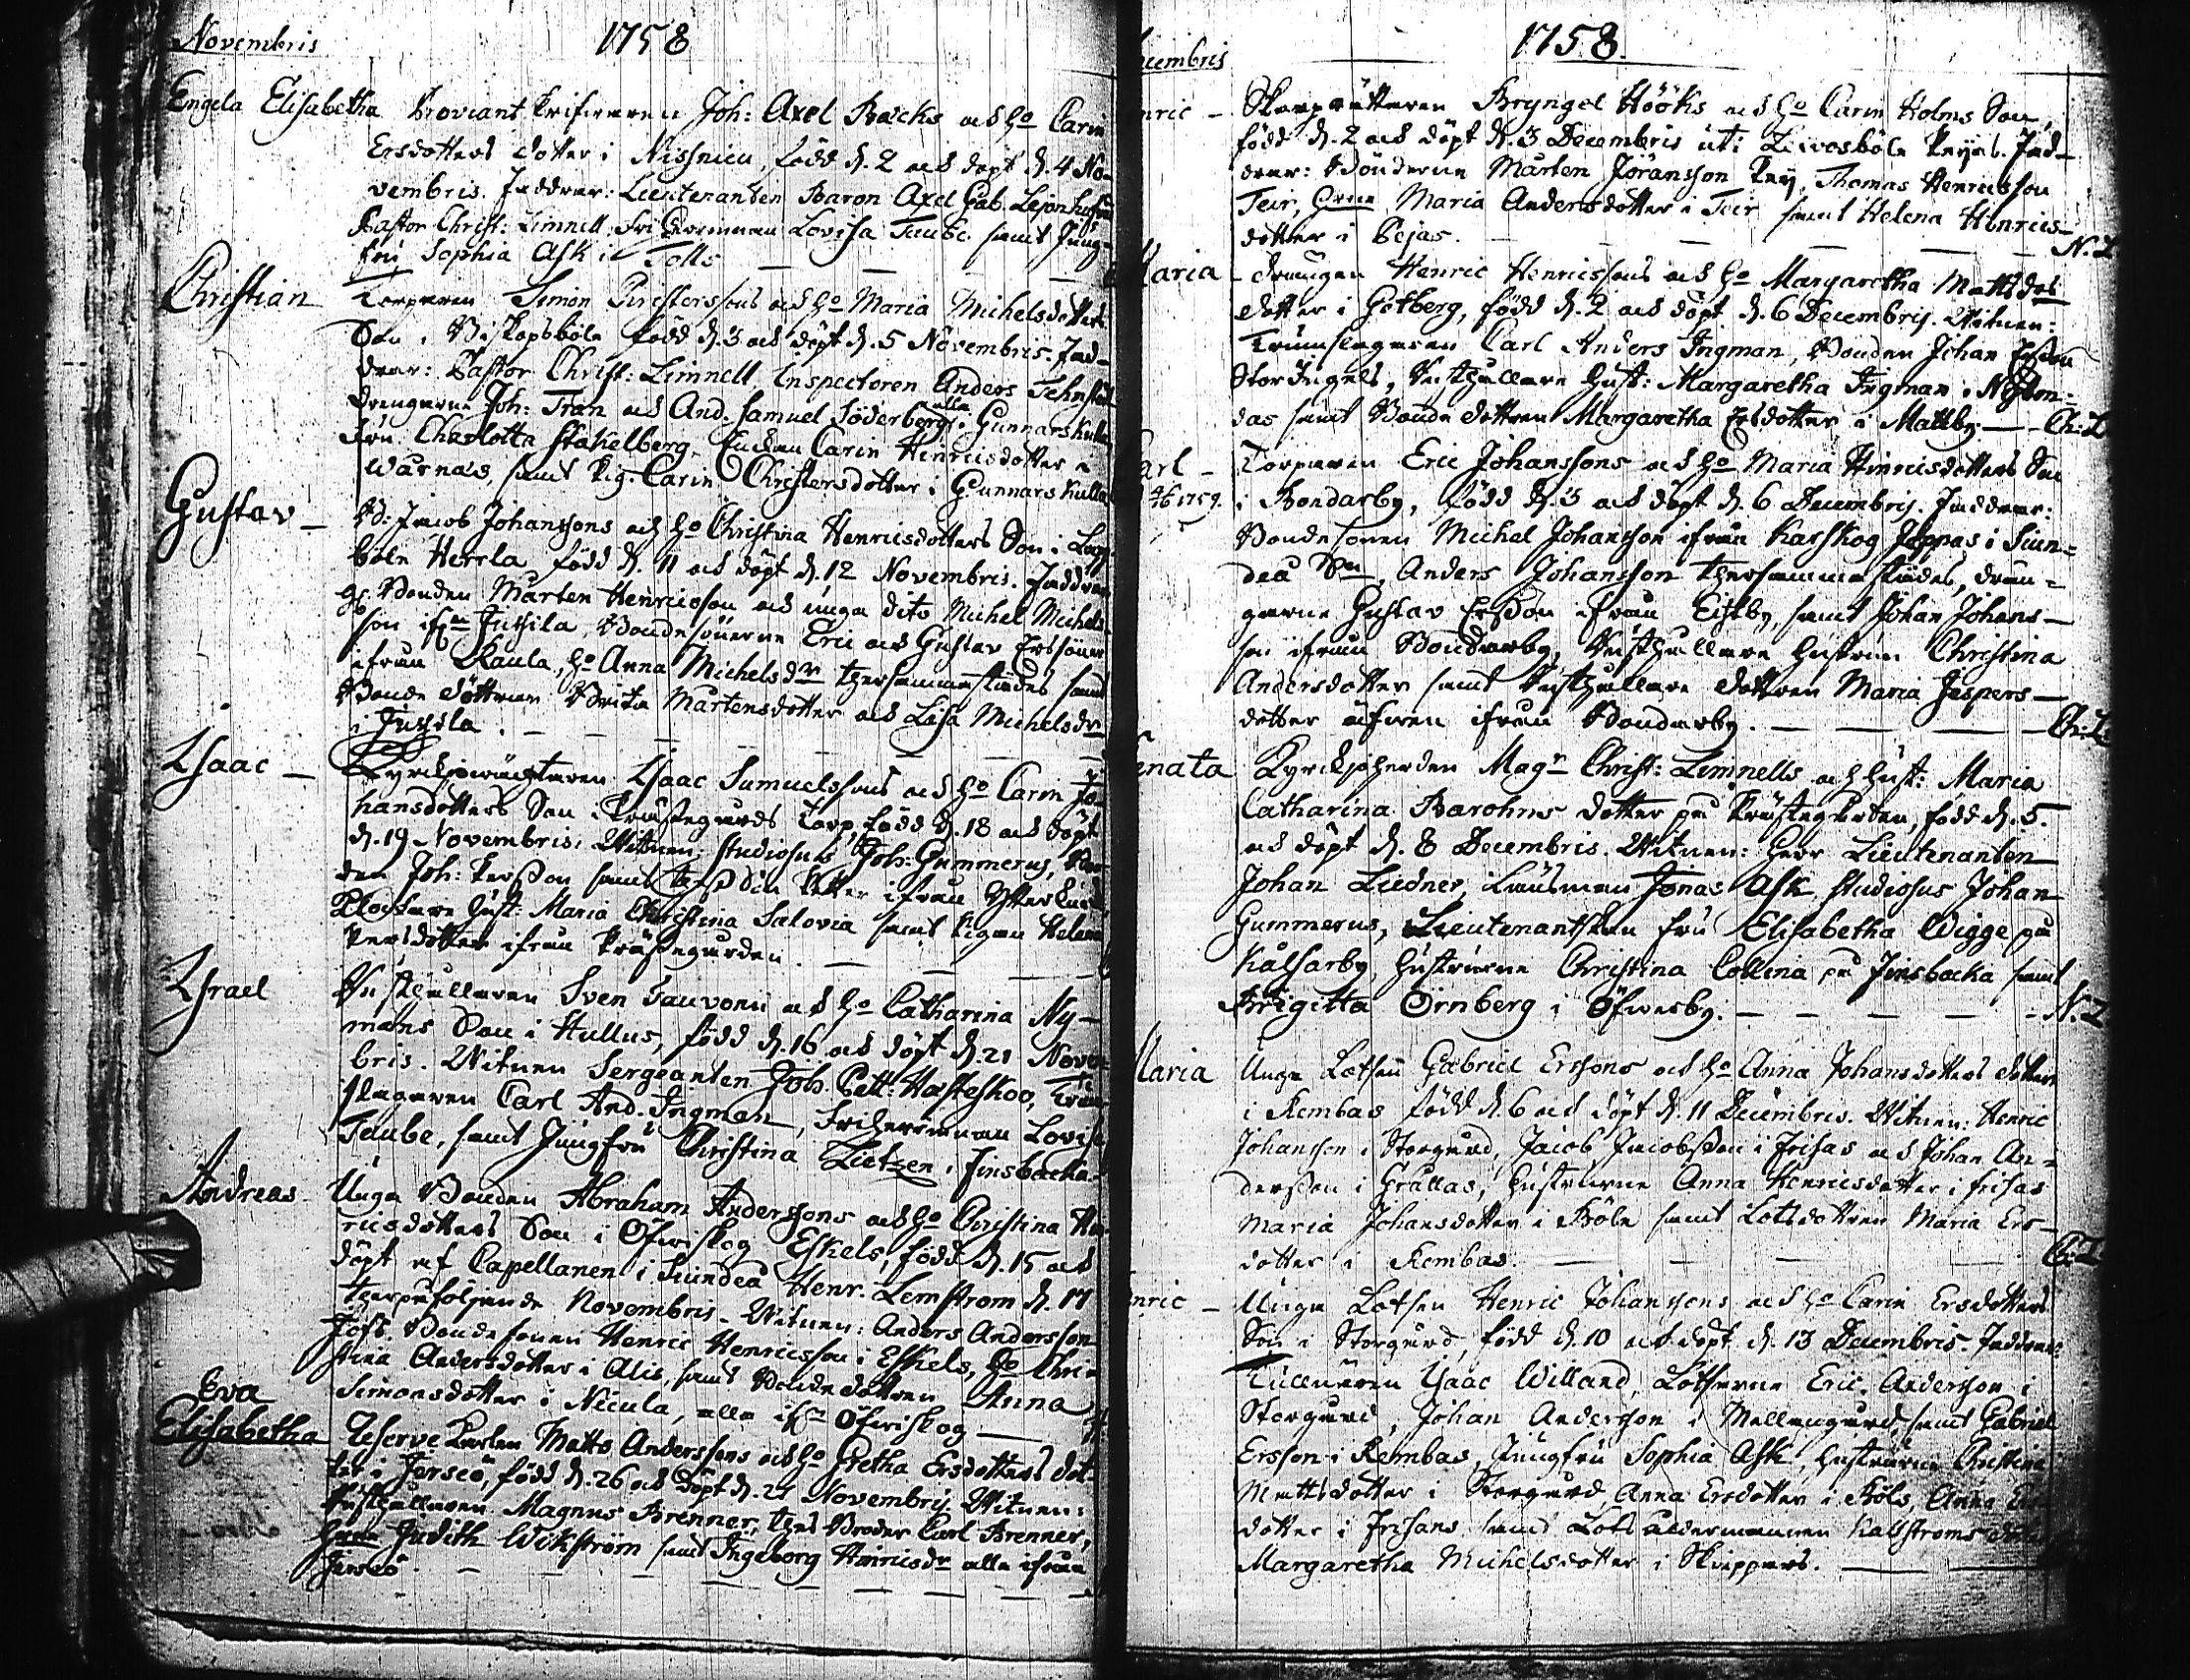 Novembris 1758
Engela Elisabetha Proviant Skrifwaren Joh: Axel Backs och Ho Carin
Ersdotters dotter i Nissnicu, född d. 2 och döpt d. 4 No-
vembris. Faddrar: Lieutenanten Baron Axel Gab. Lejonhufvud
Pastor Christ: Limnell, Lovisa Taube. samt Jung-
fru Sophia Ask i Tolls
Christian Torparen Simon Christerssons och Ho Maria Michelsdotters
Son i Biskopsböle född d. 3 och döpt d. 5 Novembris. Fad-
drar: Pastor Christ: Limnell, Inspectoren Anders
drengarne Joh: Tran och And. Samuel Söderberg alla i Gunnarskulla
Fru Charlotta Stakelberg, Enckan Carin Henricsdotter i
Warnäs, samt Pig. Carin Christersdotter i Gunnarskulla
Gustav - Bd: Jacob Johanssons och Ho Christina Henricsdotters Son i Lapp
böle Herrla född d. 11 och döpt d. 12 Novembris. Faddrar
Bonden Mårten Henricsson och unga dito Michel Michels-
son ifrn Jussila, Bondesönerne Eric och Gustav Erssöner
ifrån Kaula, Ho Anna Michelsdr thersammastädes samt
Bonde döttrar Brita Mårtensdotter och Lisa Michelsdr
i Jussila.
Isaac - Kyrckjowäcktaren Isaac Samuelssons och Ho Carin Jo-
hansdotters Son i Prästegårds Torp, född d. 18 och döpt
d. 19 Novembris. Witnen: Studiosus Joh: Gummerus,
den Joh: Persson samt ifrån
Klockare Hust: Maria Christina Salovia samt Pigan Helena
Persdotter ifrån Prästegården
Israel Inhysehållaren Sven Sauvonii och Ho Catharina Ny-
mans Son i Hullus, född d. 16 och döpt d. 21 Novem
bris. Witnen Sergeanten Joh. Pett: Hästesko, Trum-
slagaren Carl And. Ingman, Lovisa
Taube, samt Jungfru Christina Lietzen i Finsbacka.
Andreas Unga Bonden Abraham Anderssons och Ho Christina Hen-
ricsdotters Son i Öfwiskog Eskels, född d. 15 och
döpt af Capellanen i Siundeå Henr. Lemstrom d. 17
therpåföljande Novembris. Witnen: Anders Andersson
Jofs. Bondesonen Henric Henricsson i Eskels, Ho Chri-
stina Andersdotter i Alis, samt Bonde dottren Anna
Simonsdotter i Nicula, alla ifrn Öfwiskog
Eva
Elisabetha Reserve Karlen Matts Anderssons och Ho Gretha Ersdotters dot-
ter i Jerseö, född d. 26 och döpt d. 27 Novembris. Witnen:
Magnus Brenner, thes Broder Carl Brenner,
Judith Wikström samt Ingeborg Henricsdr alla ifrån
Jerseö.
cembris 1758.
nric - Skarprättaren Bryngel Hööks och Ho Carin Holms Son,
född d. 2 och döpt d. 3 Decembris uti Leivosböle Fad-
drar: Bönderne Mårten Jöransson Thomas Henricsson
Teir, Maria Andersdotter i Teir samt Helena Henrics-
dotter i Bejas. N. L
Maria - drängen Henric Henricssons och Ho Margaretha Mattsdrs
dotter i Getberg, född d. 2 och döpt d. 6 Decembris. Witnen:
Trumslagaren Carl Anders Ingman, Bonden Johan Ersson
Storingels, Hust: Margaretha Ingman i
das samt Bonde dottren Margaretha Ersdotter i Mattby. Ch: L
Carl - Torparen Eric Johanssons och Ho Maria Henricsdotters Son
1759. i Bondarby, född d. 3 och döpt d. 6 Decembris. Faddrar:
Bondesonen Michel Johansson ifrån Karskog Joppas i Siun-
deå Sn, Anders Johansson thersammastädes, drän-
garne Gustav Ersson ifrån Estby, samt Johan Johans-
son ifrån Bondarby, Hustrun Christina
Andersdotter samt dottren Maria Jespers-
dotter äfwen ifrån Bondarby. Ch: L
enata Kyrckjoherden Magr Christ: Limnells och Hust: Maria
Catharina Barohms dotter på Prästegården, född d. 5.
och döpt d. 8 Decembris. Witnen: Herr Lieutenanten
Johan Liedner, Länsman Jonas Ask, Studiosus Johan
Gummerus, Lieutenantskan Fru Elisabetha Wigge på
Kålsarby, Hustrurne Christina Collina på Finsbacka samt
Brigitta Örnberg i Öfwerby. N. L
Maria Unga Lotsen Gabriel Erssons och Ho Anna Johansdotters dotter
i Rembas född d. 6 och döpt d. 11 Decembris. Witnen: Henric
Johansson i Storgård, Jacob Jacobsson i Frisas och Johan An-
dersson i Grällas, Hustrurne Anna Henricsdotter i Frisas
Maria Johansdotter i Böle samt Lotsdottren Maria Ers-
dotter i Rembas. Ch: L
nric - Unga Lotsen Henric Johanssons och Ho Carin Ersdotters
Son i Storgård, född d. 10 och döpt d. 13 Decembris. Faddrar:
Tullnären Isaac Willand, Lotsarne Eric Andersson i
Storgård, Johan Andersson i Mellangård, samt Gabriel
Ersson i Rembas, Jungfru Sophia Ask, Hustrurne Christina
Mattsdotter i Storgård, Anna Ersdotter i Böle, Anna Ers
dotter i Frisans samt Lots åldermannen Kalströms dotter
Margaretha Michelsdotter i Skieppars.